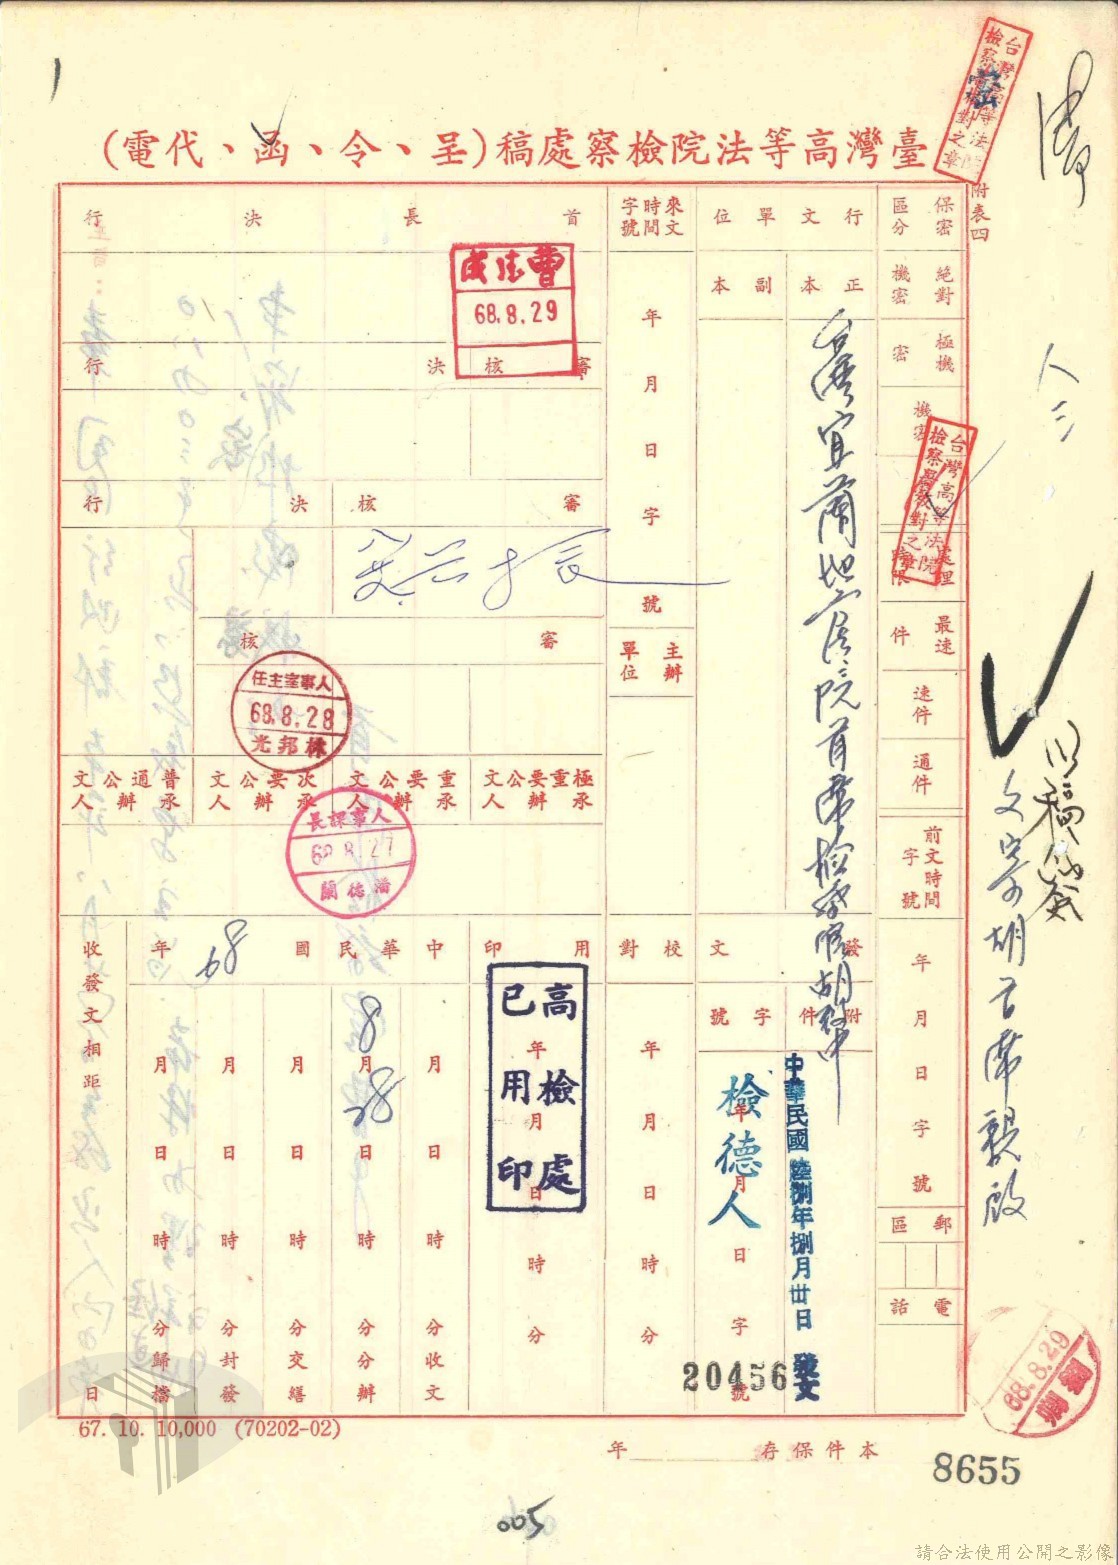 臺灣高等法院檢察處稿(呈、令、函、代電)
附表四
台灣高等法院
檢察處校對之章
保密區分
絕對機密
極機密
機密
台灣高等法院
檢察處校對之章
處理時限
最速件
速件
通件
前文時間字號
年月日字號
郵區
電話
行文單位
正本
副本
台灣宜蘭地方法院首席檢察官胡
來文時間字號
年月日字號
主辦單位
首長決行
曹德成
68.8.29
審核決行
審核決行
審核
人事室主任
68.8.28
林邦光
極重要公文承辦人
重要公文承辦人
次要公文承辦人
普通公文承辦人
人事課長
68.8.27
潘德蘭
發文
附件
字號
中華民國陸捌年捌月卅日發文
檢德人
年月日字號
20456
校對
年月日時分
用印
年月日時分
高檢處
已用印
中華民國68年
月日時分收文
8月28日時分分辦
月日時分交繕
月日時分封發
月日時分歸檔
收發文相距
日
文寄胡首席親啟
68.8.29
67. 10. 10,000 (70202-02)
本件保存
年
8655
005
請合法使用公開之影像